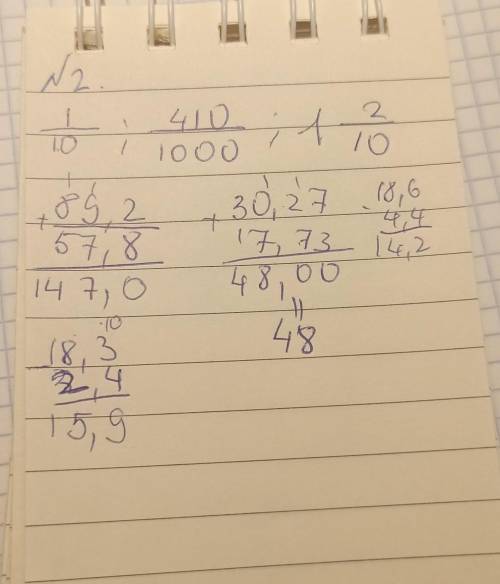 №2.
1/10 ; 410/1000 ; 1 2/10
1 1
+ 89,2
57,8
147,0
1 1
+ 30,27
17,73
48,00
=
48
- 18,6
4,4
14,2
.10
- 18,3
2,4
15,9